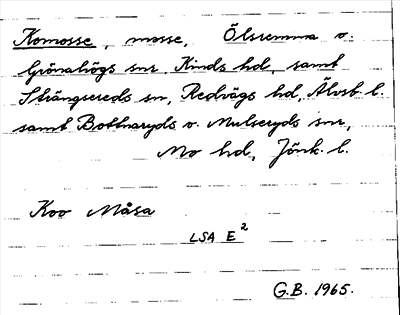 Komosse, mosse, Ölsremma o.
Grönahögs snr, Kinds hd, samt
Strängsereds sn, Redvägs hd, Älvsb. l.
samt Bottnaryds o. Mulseryds snr,
Mo hd, Jönk. l.
Koo Måsa
LSA E²
G.B. 1965.